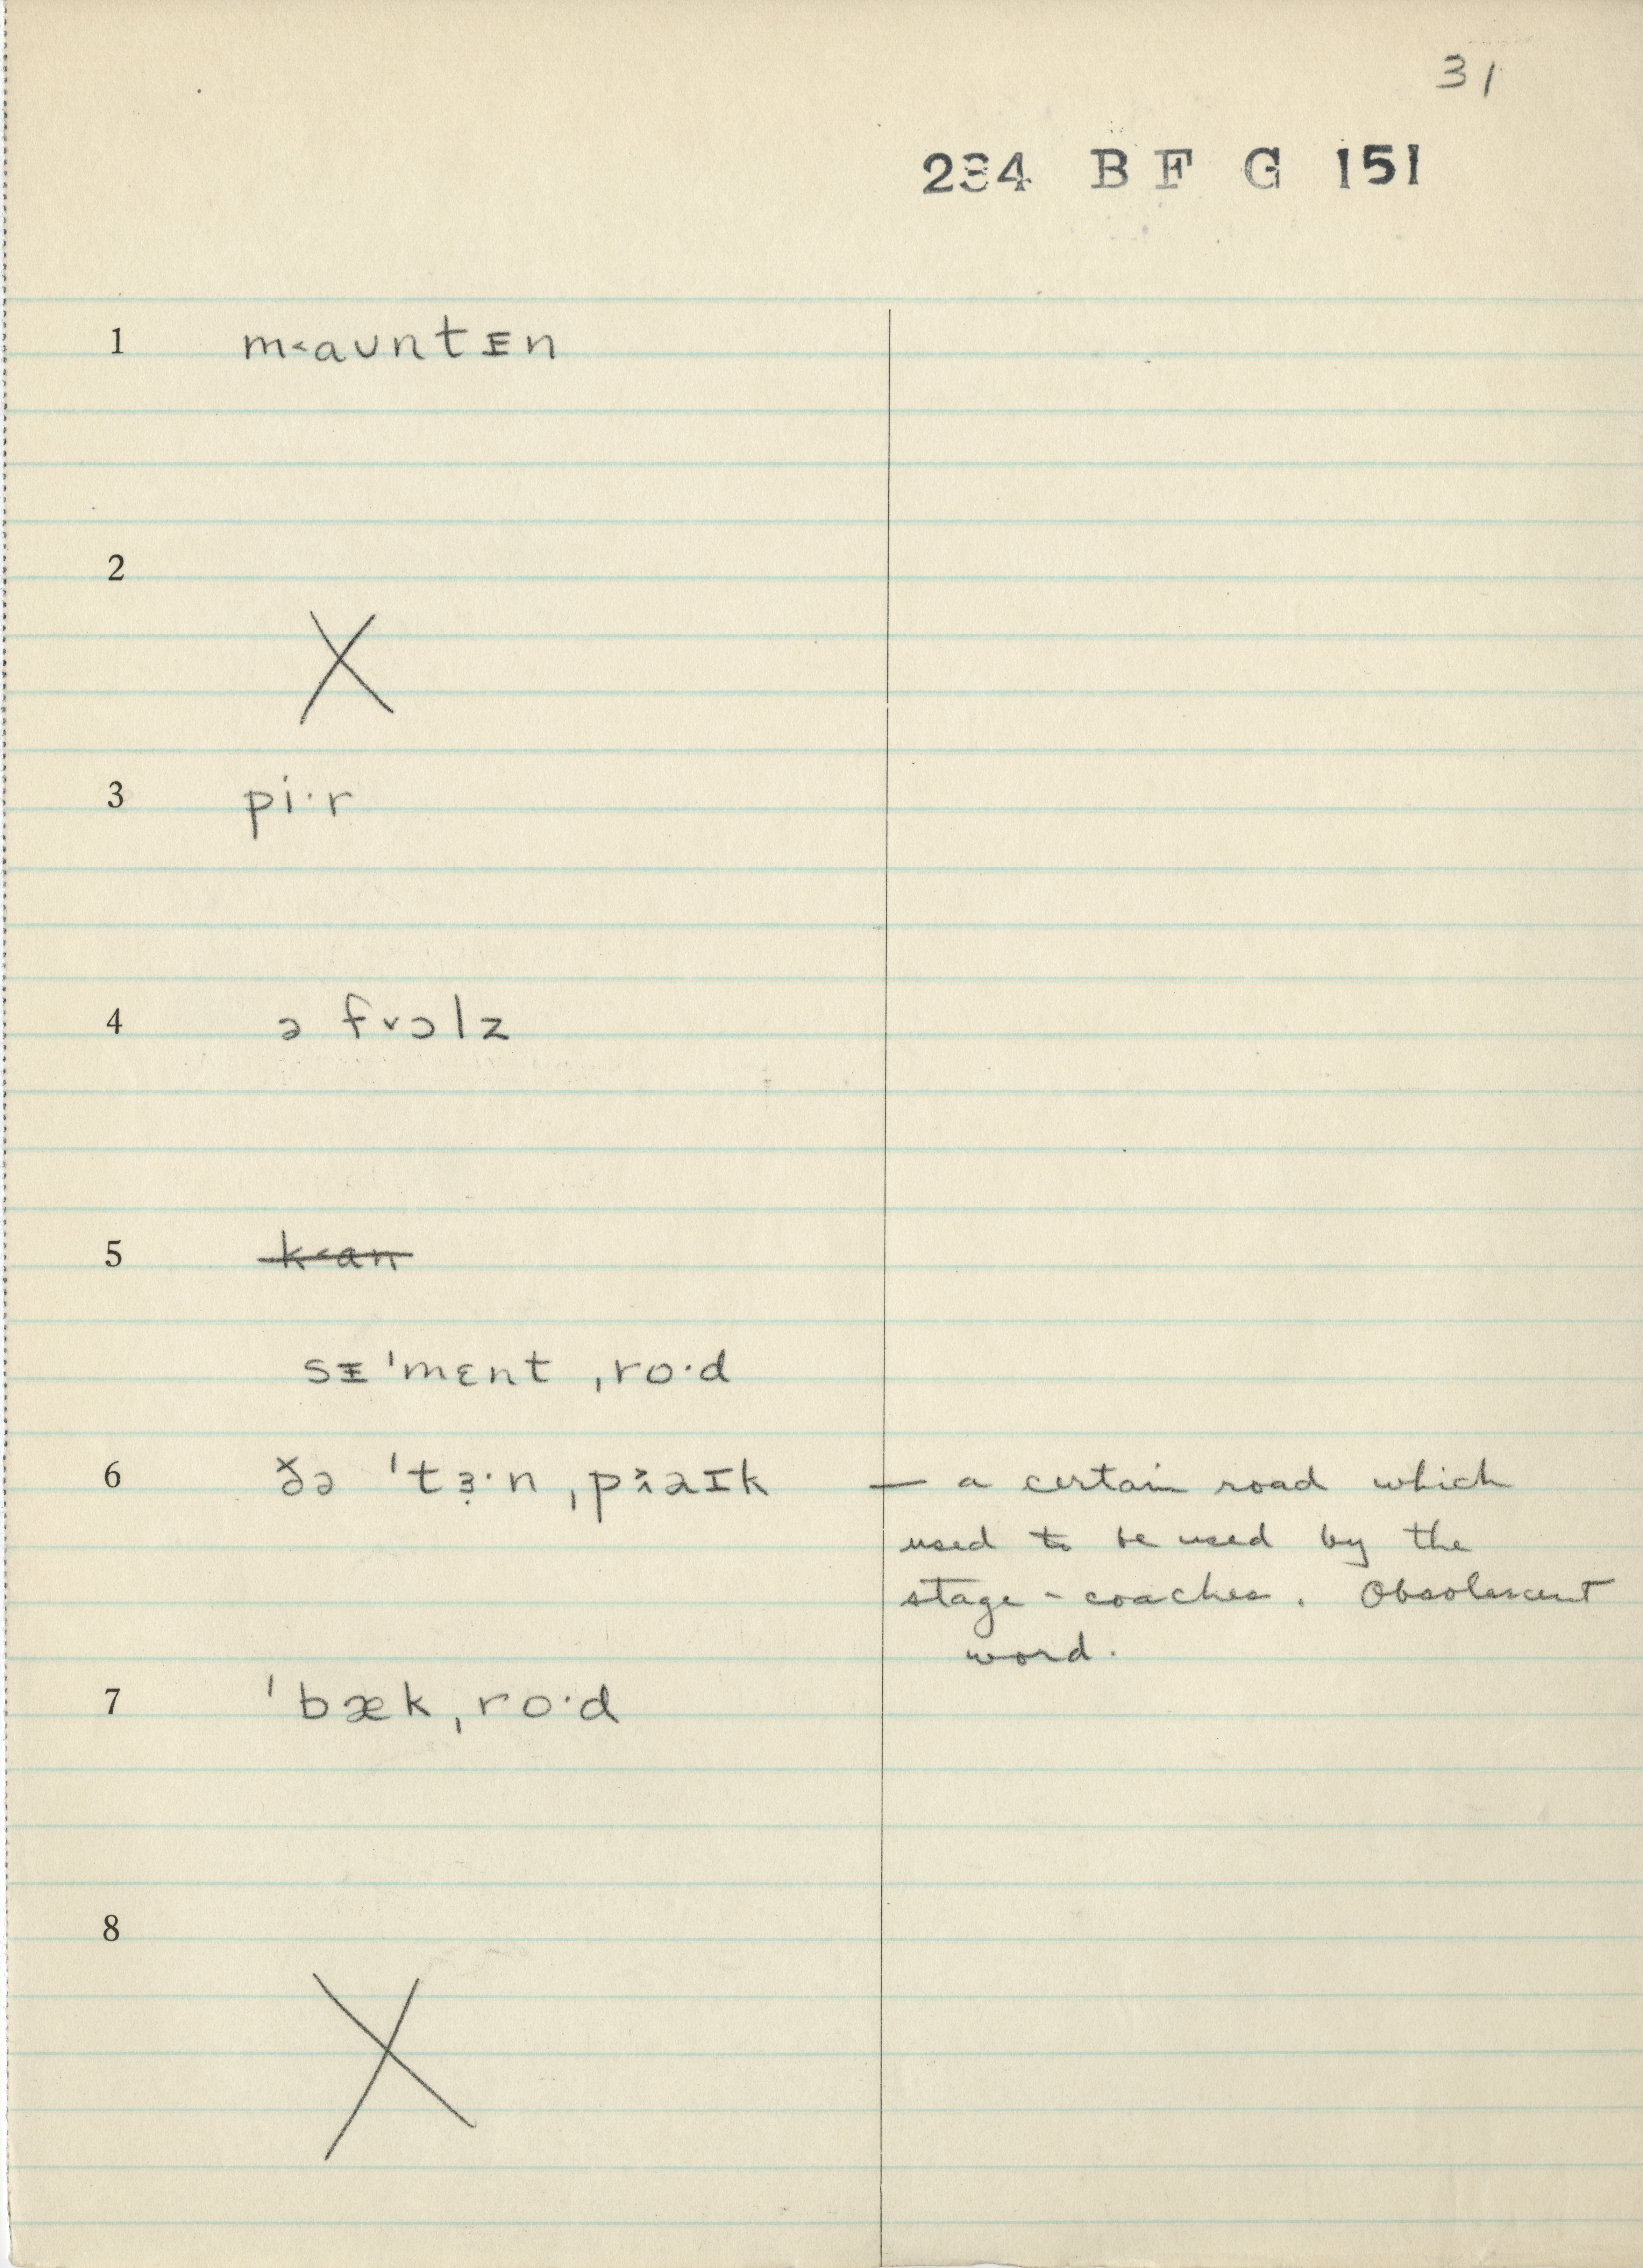 31
234 B F G 151
1 m˂aʊntᵻn
2 X
3 pi·r
4 ə f˅ɔlz
5 k˂an
sᵻ'mɛnt ˌro·d
6 ðə 'tɜ̣·n ˌpə̌aɪk — a certain road which
used to be used by the
stage-coaches. Obsolescent
word.
7 'bækˌro·d
8 X